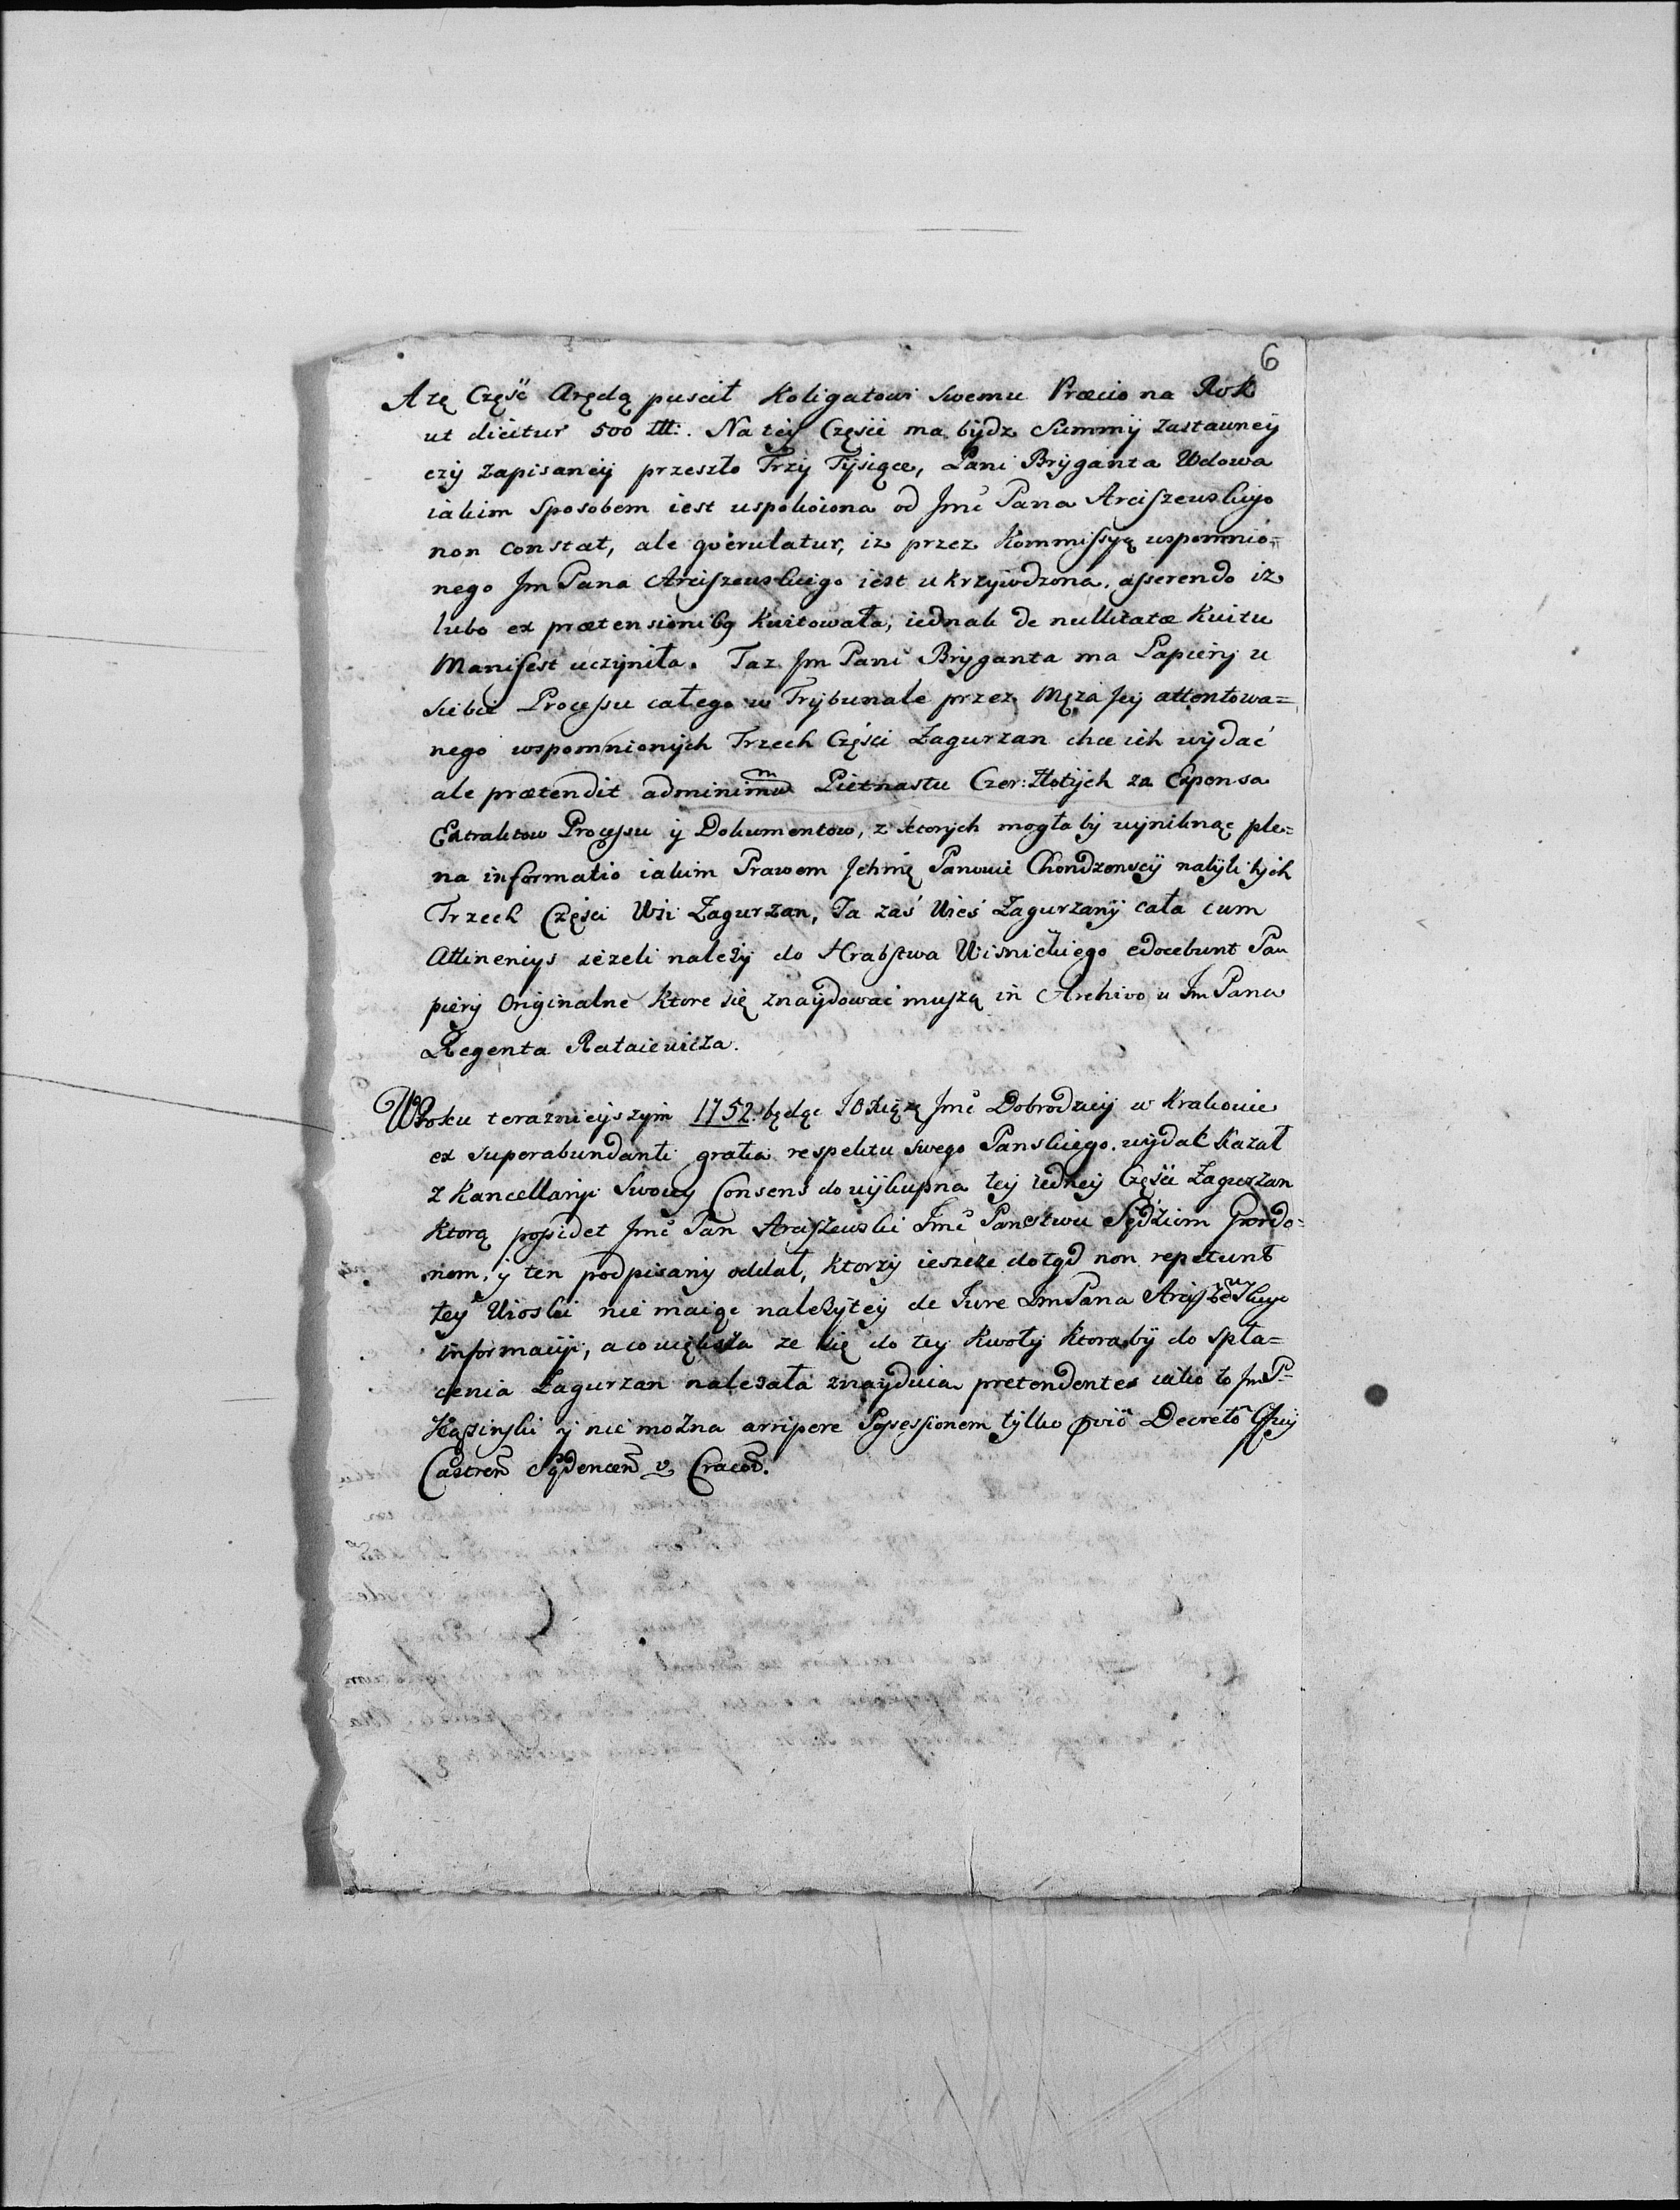 6
A tę Część Arędą puscił Koligatowi swemu Præcio na Rok
ut dicitur 500 Ttt: . Na tey Części ma bydz Summy zastawney
czy zapisaney przeszło Trzy Tysiące, Pani Bryganta Wdowa
iakim Sposobem iest uspokoiona od Jmć Pana Arciszewskiego
non constat, ale qverulatur, iz przez Kommissyą wspomnio=
nego Jm Pana Arciszewskiego iest ukrzywdzona. asserendo iz
lubo ex prætensionibq kwitowała, iednak de nullitate Kwitu
Manifest uczyniła. Taz Jm Pani Bryganta ma Papiery u
siebie Processu całego w Trybunale przez Męza Jey attentowa=
nego wspomnionych Trzech Części Zagurzan chce ich wydać
ale prætendit adminimum Pietnastu Czer: Złotych za Expensa
Extraktow Processu y Dokumentow, z ktorych mogła by wyniknąc ple=
na informatio iakim Prawem Ichmę Panowie Chondzenscy nabyli tych
Trzech Części Wśi Zagurzan, Ta zaś Wieś Zagurzany cała cum
Attinencys iezeli nalezy do Hrabstwa Wiśnickiego edocebunt Pa
piery Originalne ktore się znaydować muszą in Archivo u Jm Pana
Regenta Rataiewicza.
W Roku teraznieyszym 1752. będąc JO Xiązę Jmć Dobrodziey w Krakowie
ex superabundanti gratia respektu swego Panskiego. wydać kazał
z Kancellaryi Swoiey Consens do wykupna tey iedney Części Zagurzan
ktorą possidet Jmć Pan Arciszewski Jmć Panstwu Sędziom Gordo=
nom. y ten podpisany oddał, ktorzy ieszcze dotąd non repetunt
tey Wioski nie maiąc nalezytey de Iure Jm Pana Arciszewskiego
informacyi, a co większa ze się do tey kwoty ktoraby do spła=
cenia Zagurzan nalezała znayduia pretendentes iako to Jm P.
y nie mozna arripere Possessionem tylko Decretô Offcij
Castren Sądecen v Cracov.